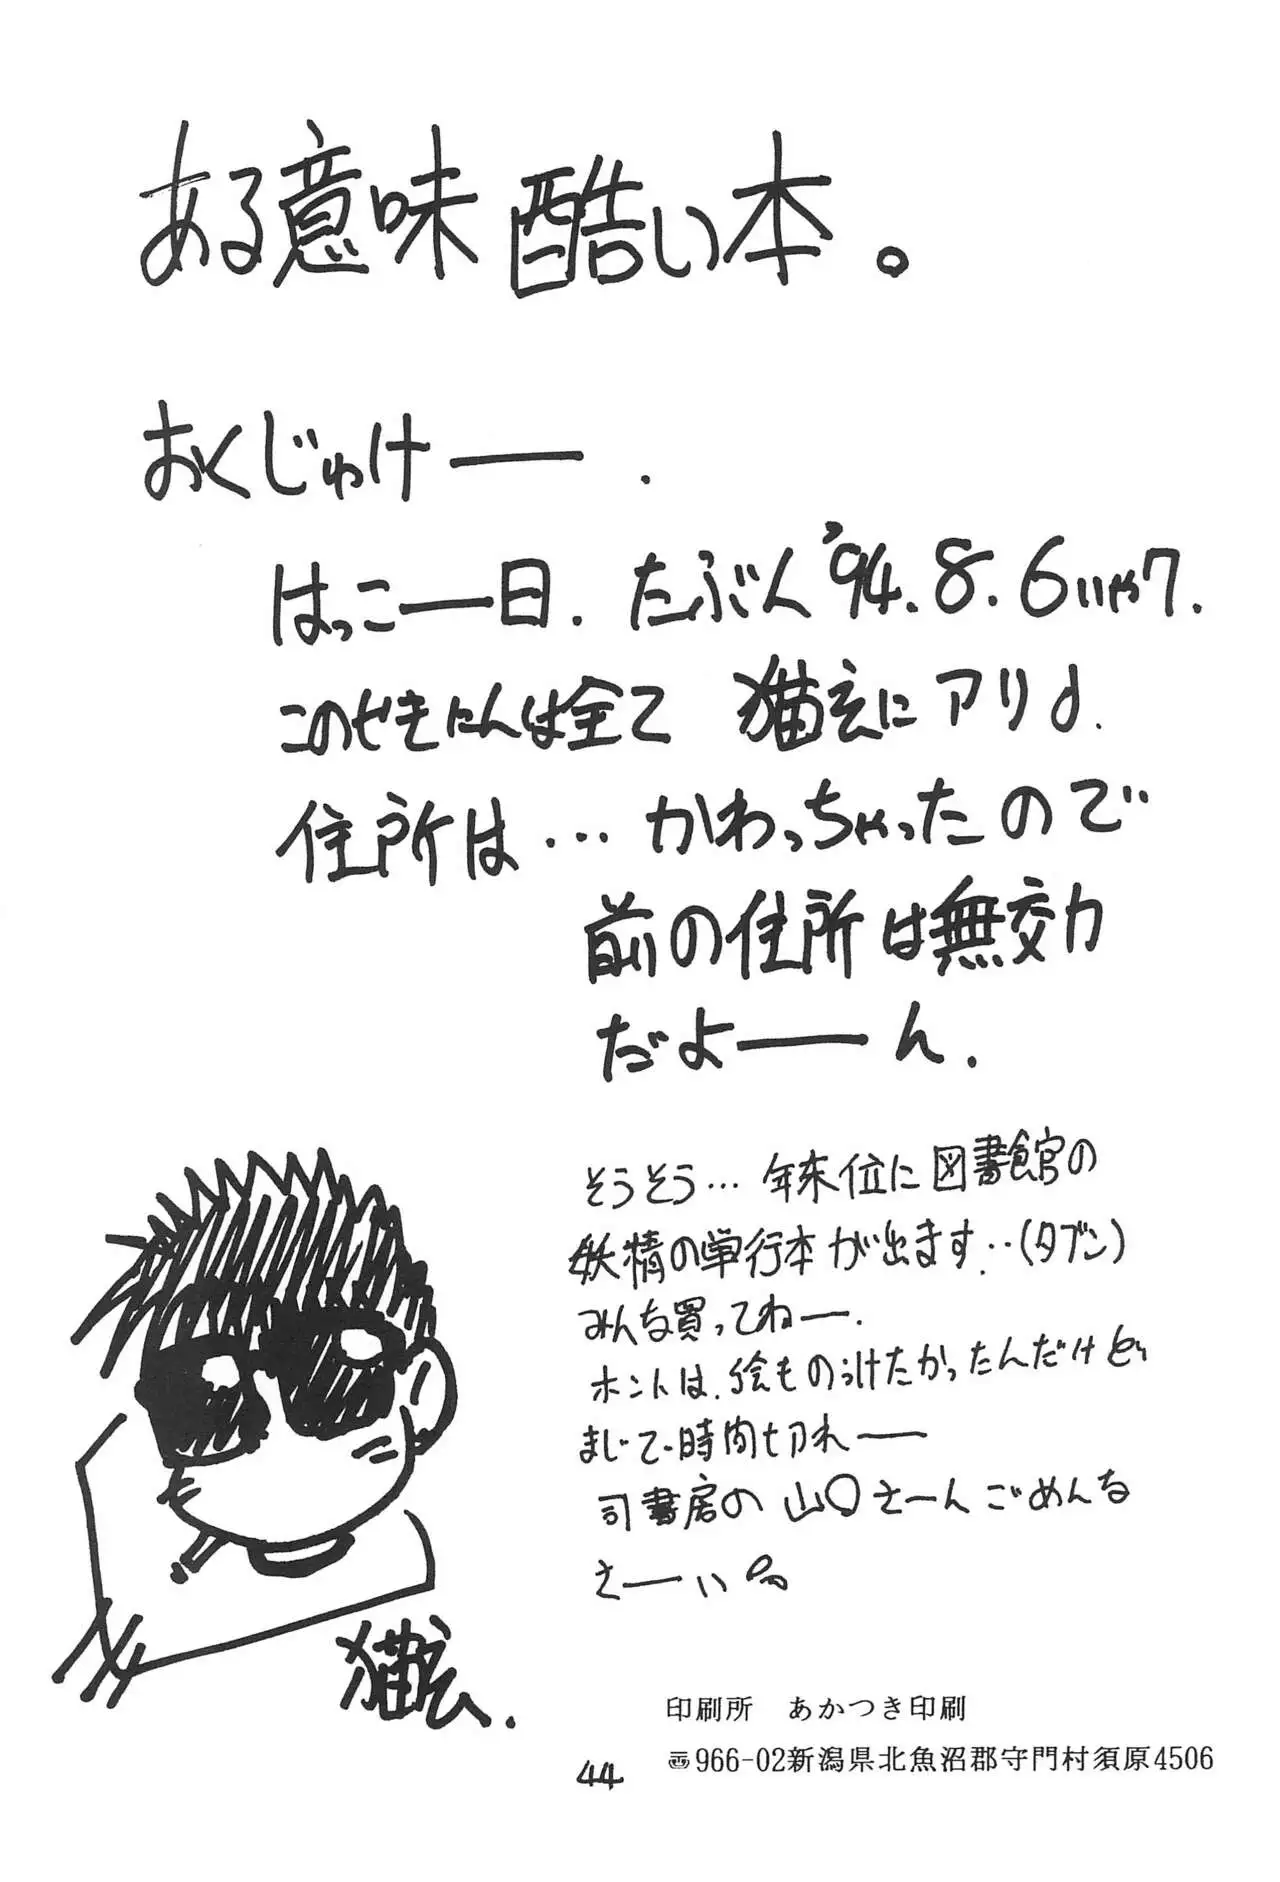 ある意味酷い本。
おくじゅけー.
はっこー日.たぶん'94.8.6いや7.
このせきにんは全て 猫玄にアリ♂.
住所は…かわっちゃったので
前の住所は無交力
だよーん.
そうそう…年末位に図書館の
妖精の単行本が出ます…(タブン)
みんな買ってねー.
ホントは、絵もの
たかったんだけど
まじで時間切れー
司書房の山〇さーんごめんな
さーい
猫玄.
印刷所 あかつき印刷
966-02新潟県北魚沼郡守門村須原4506
44